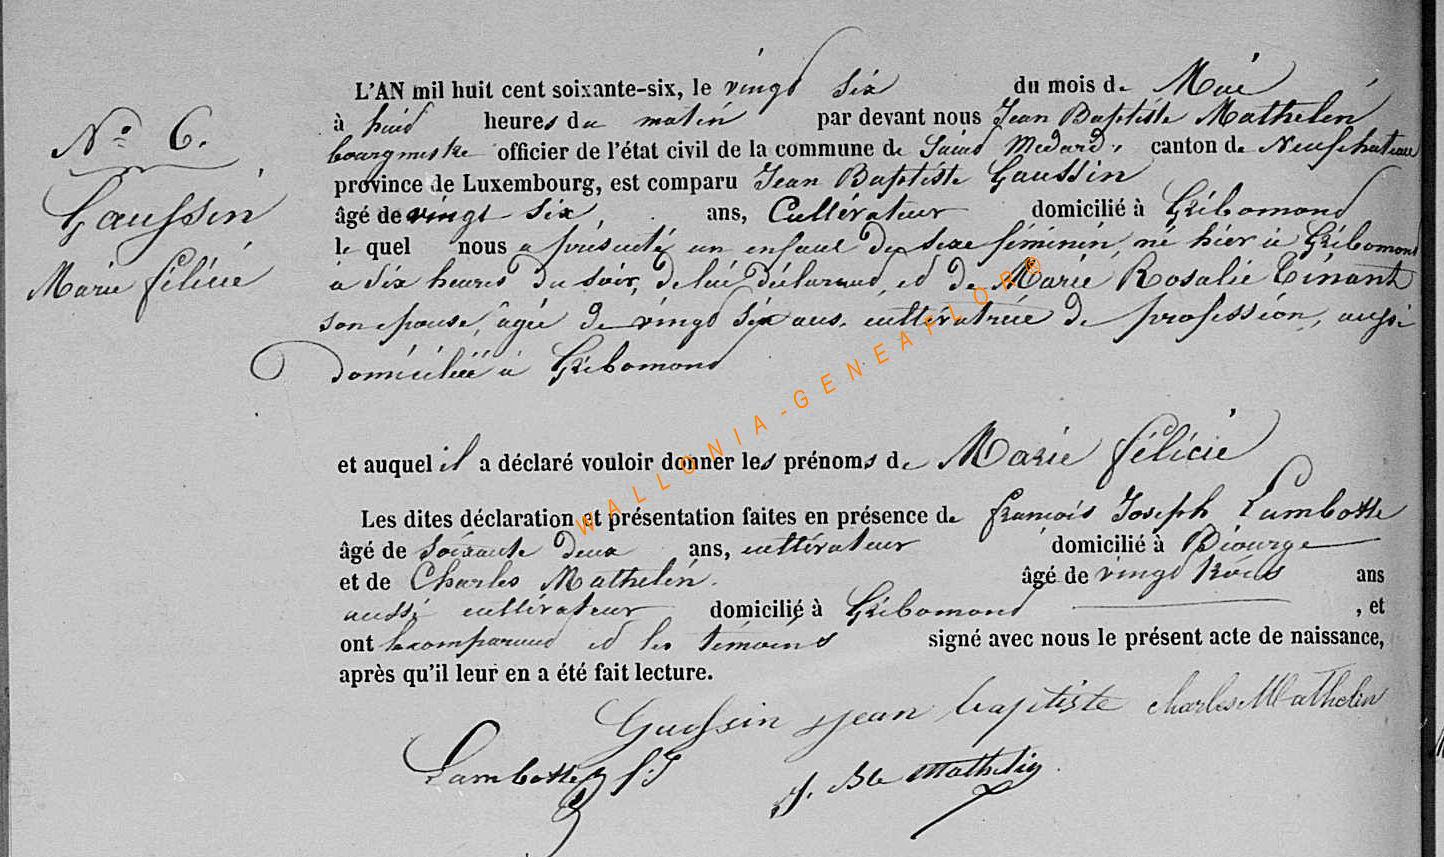 N° 6.
Gaussin
Marie Félicie
L'AN mil huit cent soixante-six, le vingt six du mois de Mai
à huit heures du matin par devant nous Jean Baptiste Mathelin
bourgmestre officier de l'état civil de la commune de Saint Medard, canton de Neufchateau
province de Luxembourg, est comparu Jean Baptiste Gaussin
âgé de vingt six, ans, Cultivateur domicilié à Gribomont
lequel nous a présenté un enfant du sexe féminin, né hier à Gribomont
à six heures du soir, de lui déclarant, et de Marie Rosalie Tinant
son epouse, agée de vingt six ans, cultivatrice de profession, aussi
domiciliée à Gribomont
et auquel il a déclaré vouloir donner les prénoms de Marie Félicie
Les dites déclaration et présentation faites en présence de françois Joseph Lambotte
âgé de soixante deux ans, cultivateur domicilié à Biourge
et de Charles Mathelin. âgé de vingt trois ans
aussi cultivateur domicilié à Gribomont , et
ont le comparant et les témoins signé avec nous le présent acte de naissance,
après qu'il leur en a été fait lecture.
Gaussin jean baptiste charles Mathelin
Lambotte f. J
J. Bte Mathelin
WALLONIA-GENEAFLOR©